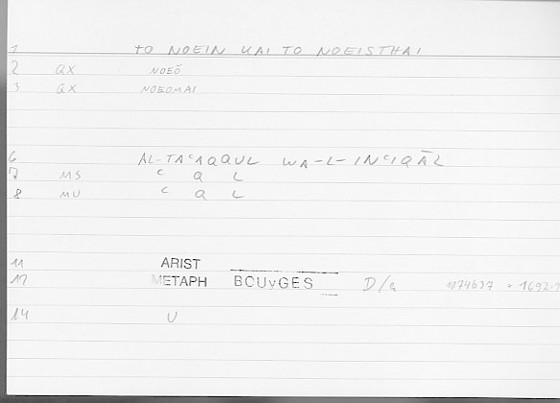 1 TO NOEIN KAI TO NOEISTHAI
2 QX NOEŌ
3 QX NOEOMAI
6 AL-TAᶜAQQUL WA-L-INᶜIQĀL
7 MS ᶜ Q L
8 MU ᶜ Q L
11 ARIST
12 METAPH BOUYGES D/a
14 U